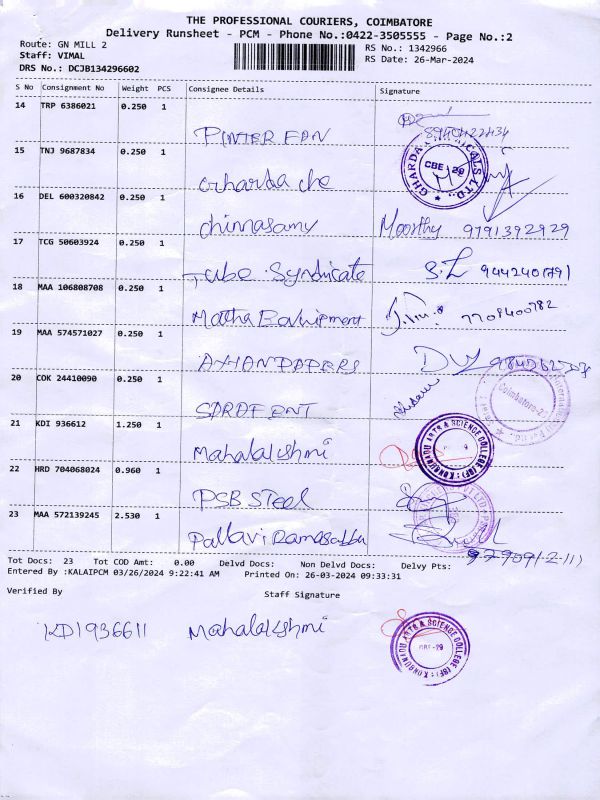 THE PROFESSIONAL COURIERS, COIMBATORE
Delivery Runsheet - PCM - Phone No.:0422-3505555 - Page No.:2
Route: GN MILL 2
RS No.: 1342966
Staff: VIMAL
RS Date: 26-Mar-2024
DRS No.: DCJB134296602
S No Consignment No Weight PCS Consignee Details Signature
14 TRP 6386021 0.250 1
15 TNJ 9687834 0.250 1
16 DEL 600320842 0.250 1
chinnasamy Moorthy 9791392929
17 TCG 50603924 0.250 1
Tube Syndicate
18 MAA 106808708 0.250 1
Matha 7708400782
19 MAA 574571027 0.250 1
AYHAN PAPERS
20 COK 24410090 0.250 1
Coimbatore-2
21 KDI 936612 1.250 1
Mahalakshmi
KONGUNADU ARTS & SCIENCE COLLEGE
22 HRD 704068024 0.960 1
PSB Steel
23 MAA 572139245 2.530 1
Pallavi
Tot Docs: 23 Tot COD Amt: 0.00 Delvd Docs: Non Delvd Docs: Delvy Pts:
Entered By :KALAIPCM 03/26/2024 9:22:41 AM Printed On: 26-03-2024 09:33:31
Verified By Staff Signature
KDI936611 Mahalakshmi
KONGUNADU ARTS & SCIENCE COLLEGE